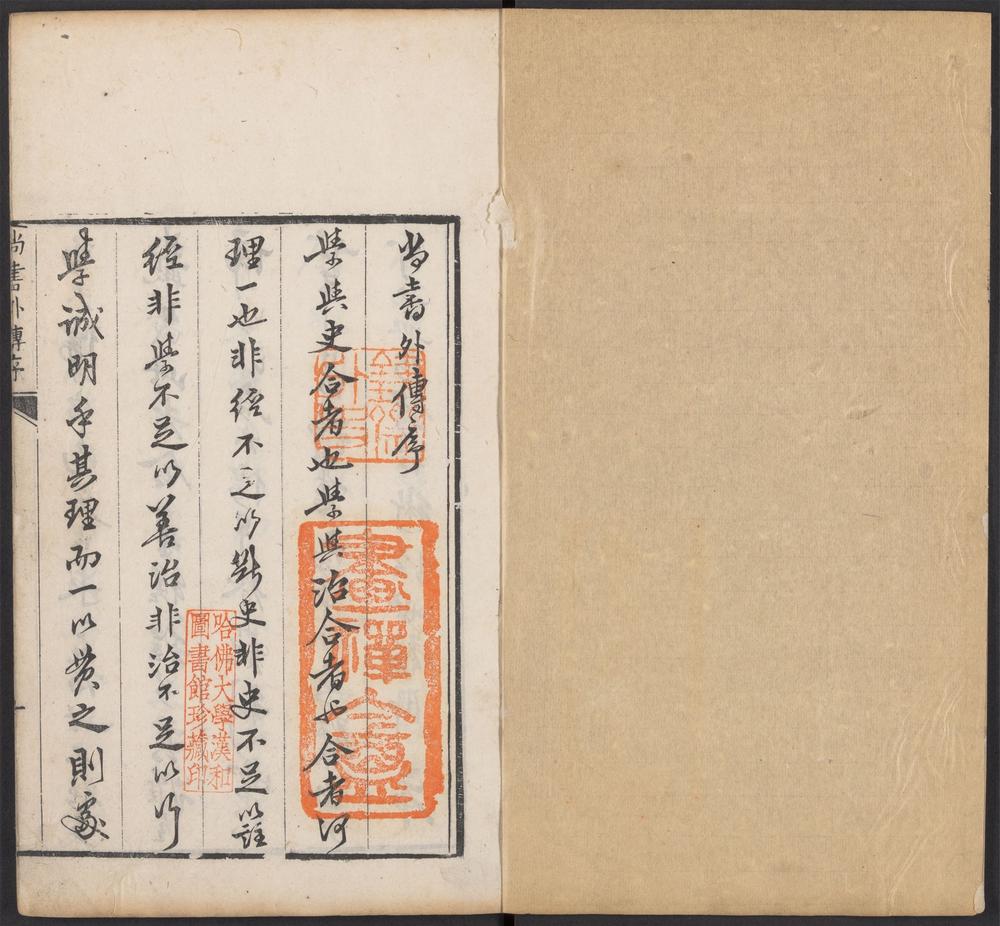 尚書外傳序
學與史合者也學與治合者也合者何
理一也非經不足以斷史非史不足以證
經非學不足以善治非治不足以行
學誠明乎其理而一以貫之則處
尚書外傳序
一
哈佛大學漢和
圖書館珍藏印
畫禪盦